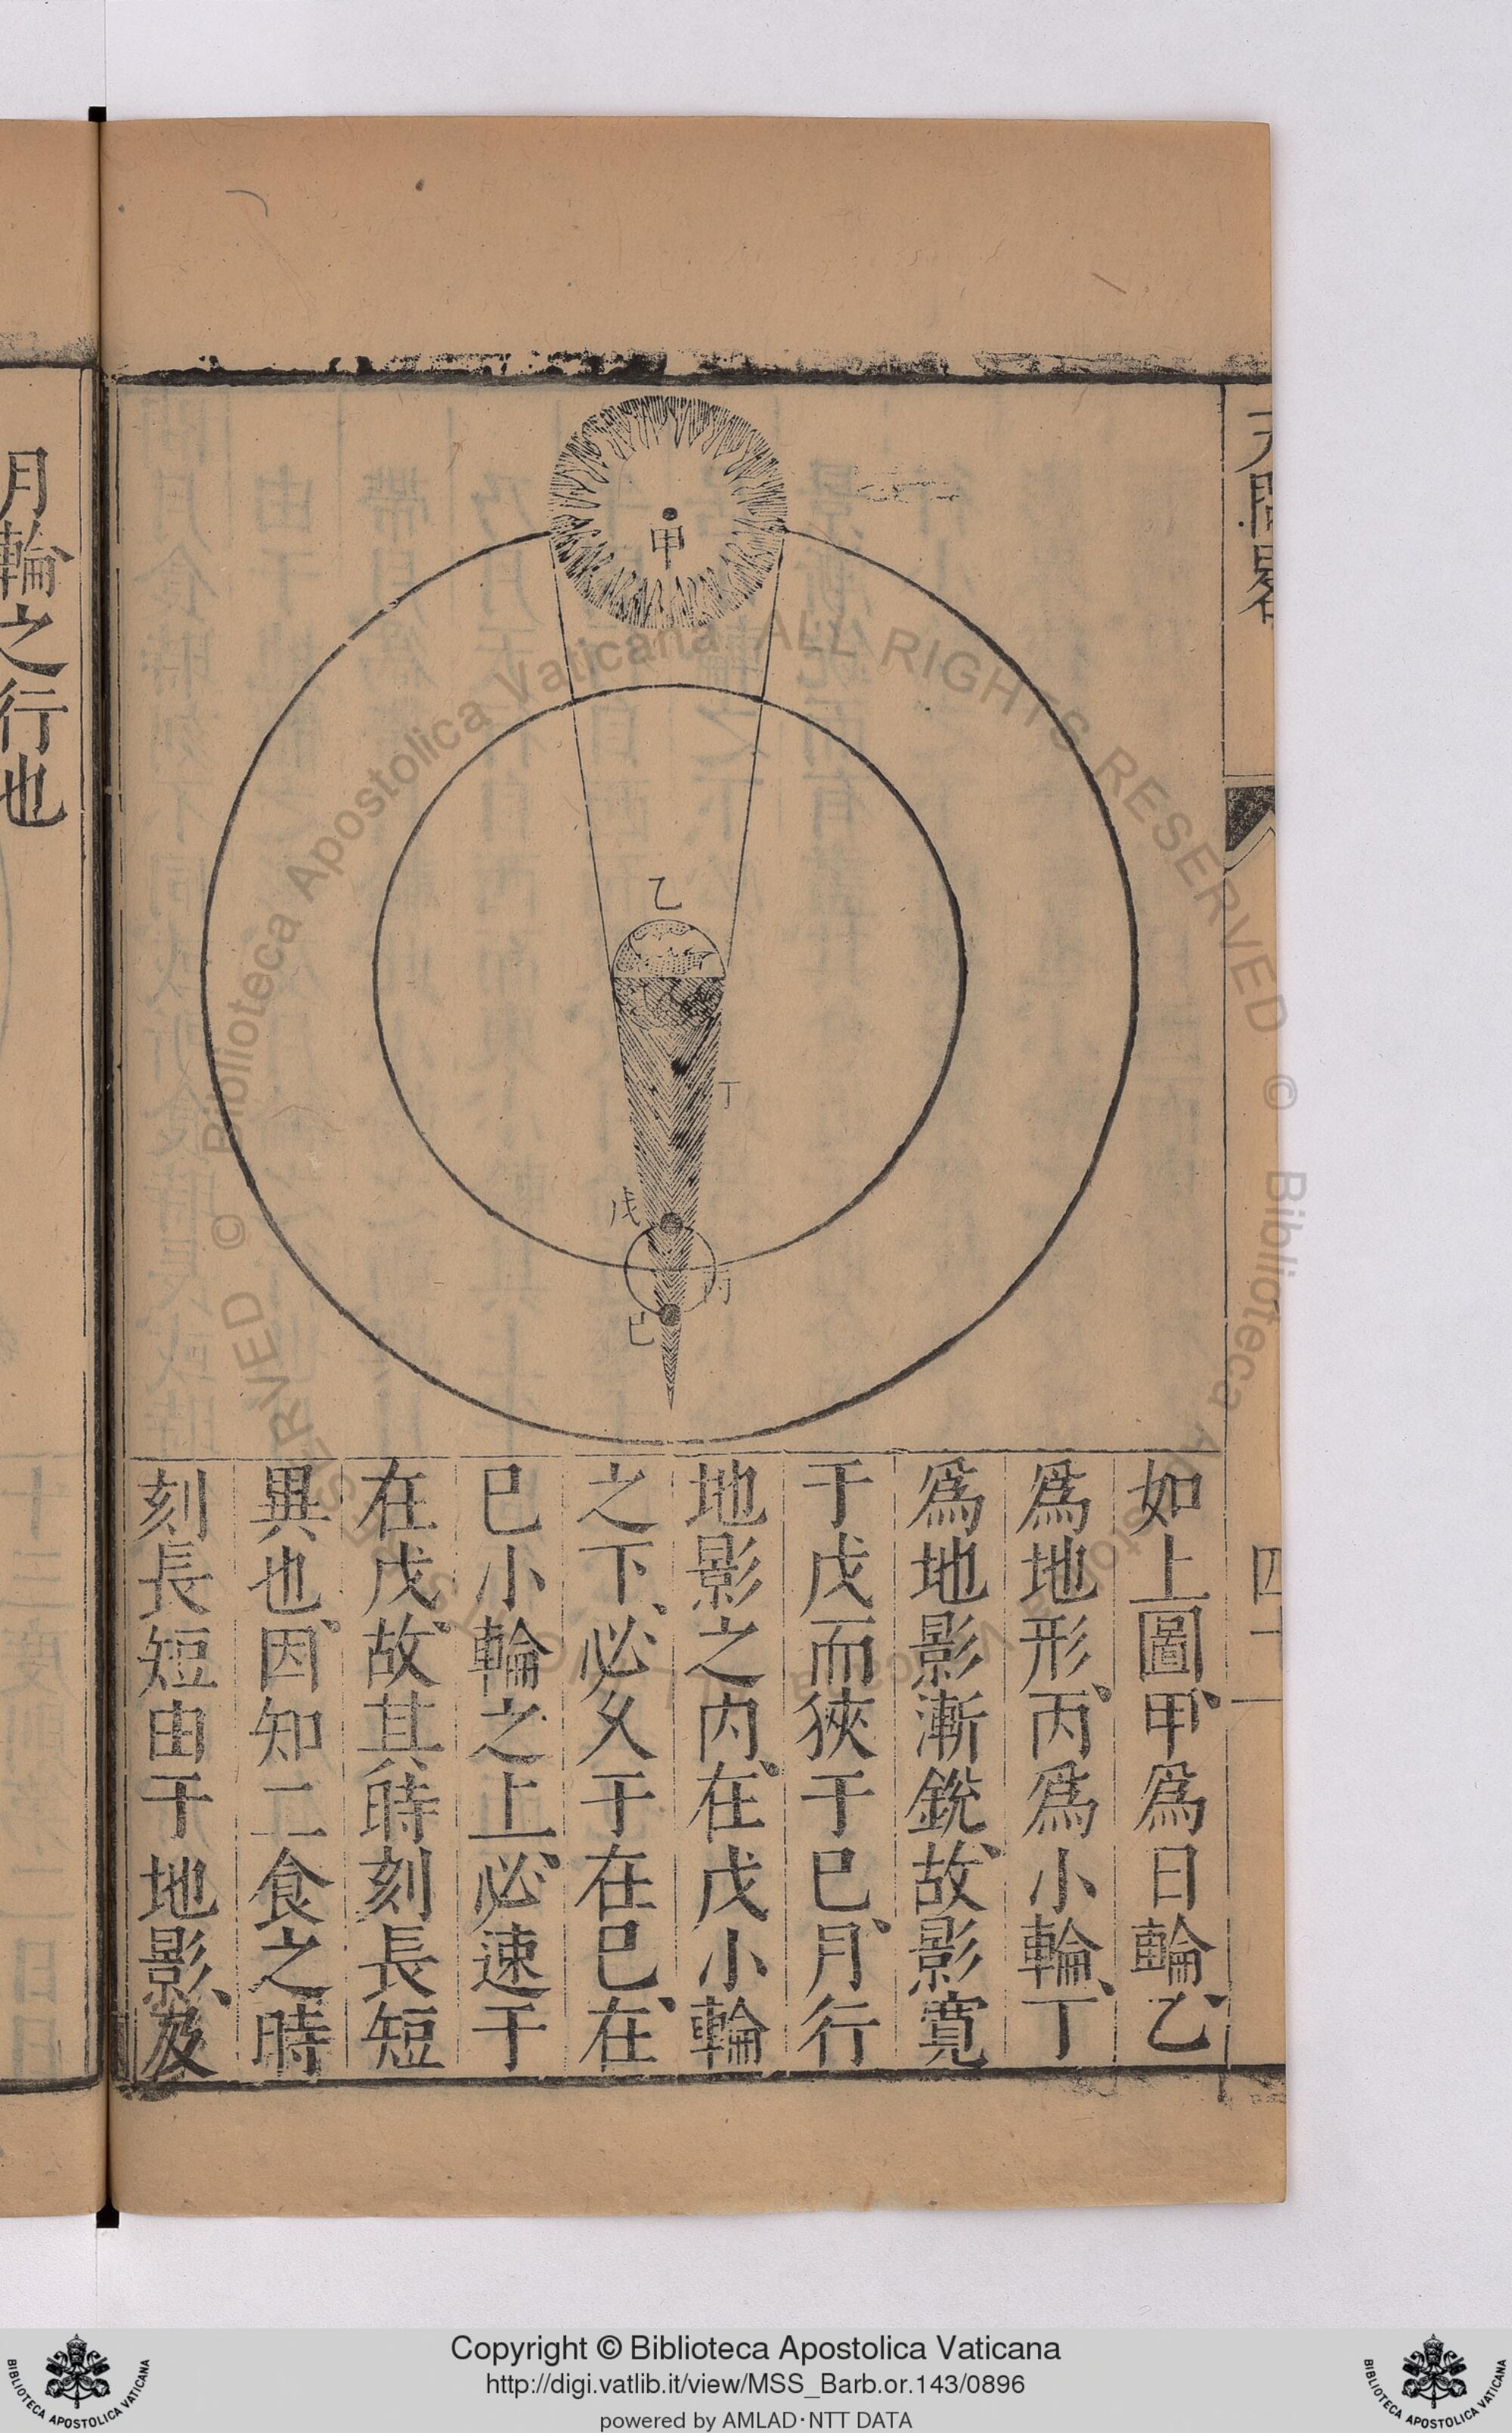 天問畧
四十一
甲
乙
丁
戊
丙
己
如上圖甲、爲日輪乙、
爲地形、丙爲小輪、丁
爲地影漸銳、故影寬
于戊而狹于巳、月行
地影之内、在戊小輪
之下、必久于在巳、在
巳小輪之上、必速于
在戊、故其時刻長短
異也、因知二食之時
刻長短由于地影、及
月輪之行也
Biblioteca Apostolica Vaticana ALL RIGHTS RESERVED ©
Copyright © Biblioteca Apostolica Vaticana
http://digi.vatlib.it/view/MSS_Barb.or.143/0896
powered by AMLAD·NTT DATA
BIBLIOTECA APOSTOLICA VATICANA
BIBLIOTECA APOSTOLICA VATICANA